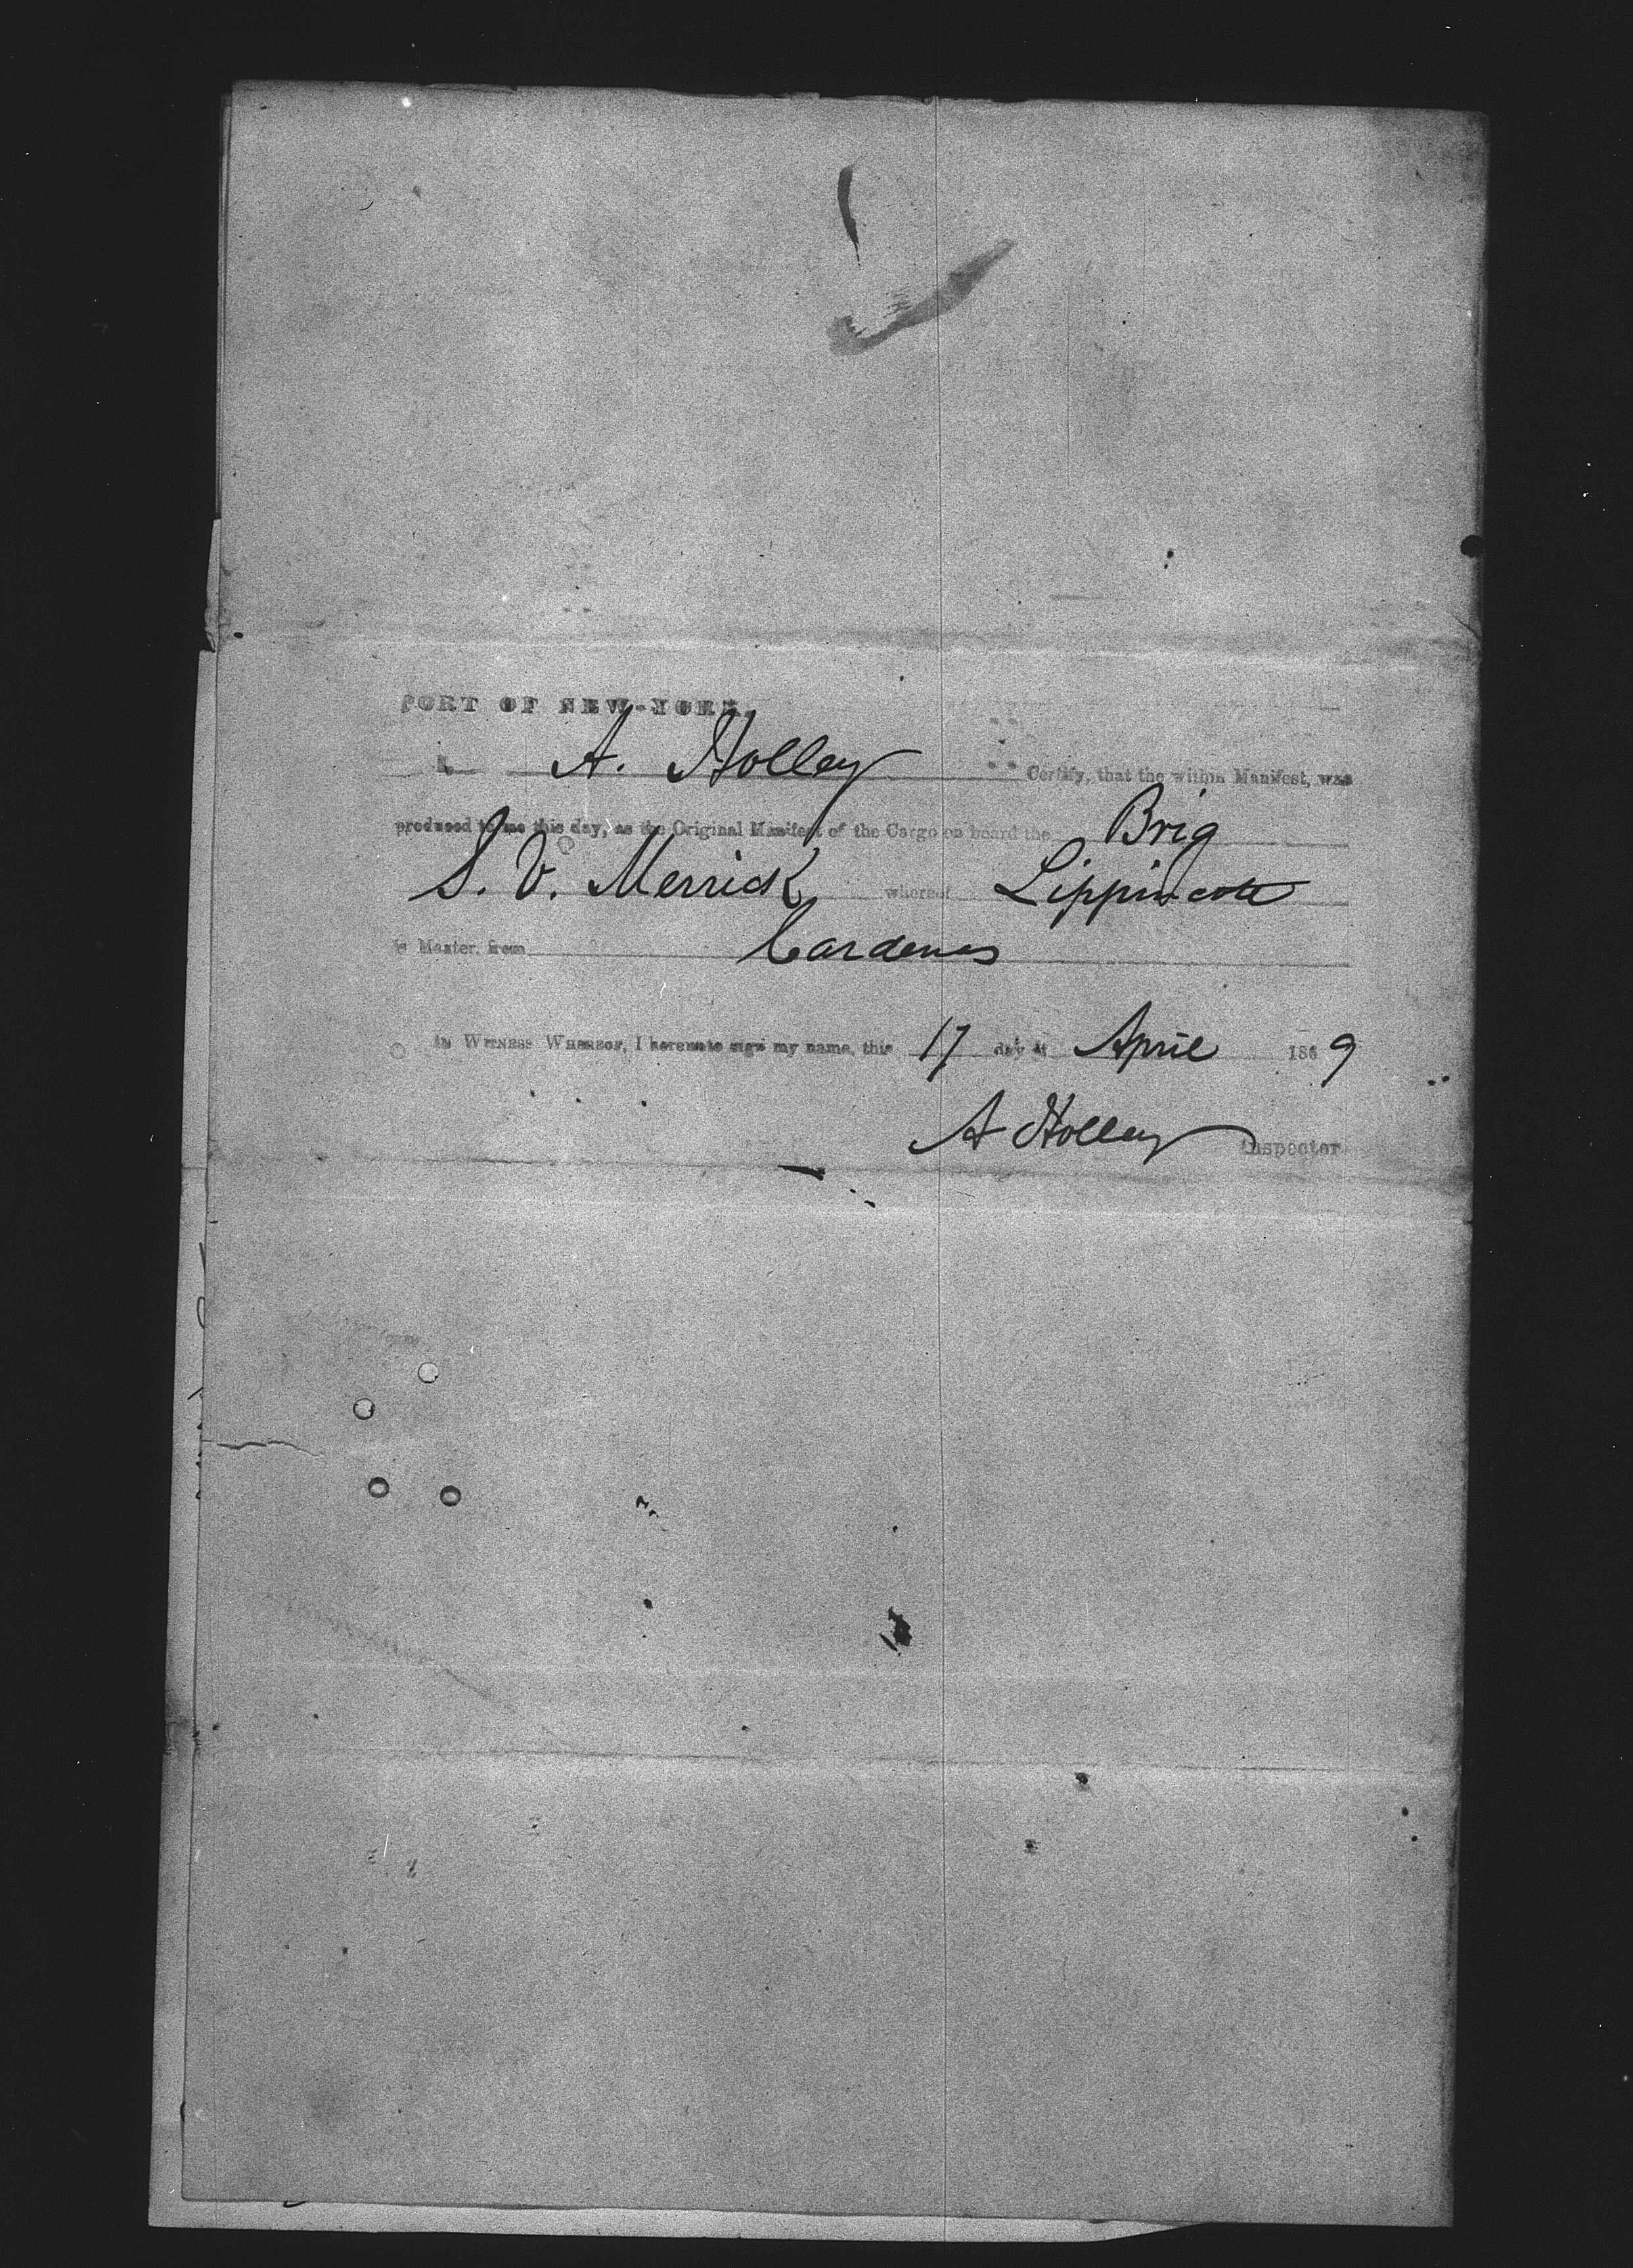 PORT OF NEW-YORK.
I, A. Holley Certify, that the within Manifest, was
produced to me this day, as the Original Manifest of the Cargo on board the Brig
S. V. Merrick whereof Lippincott
is Master, from Cardenas
In Witness Whereof, I hereunto sign my name, this 17 day of April 1869
A Holley Inspector